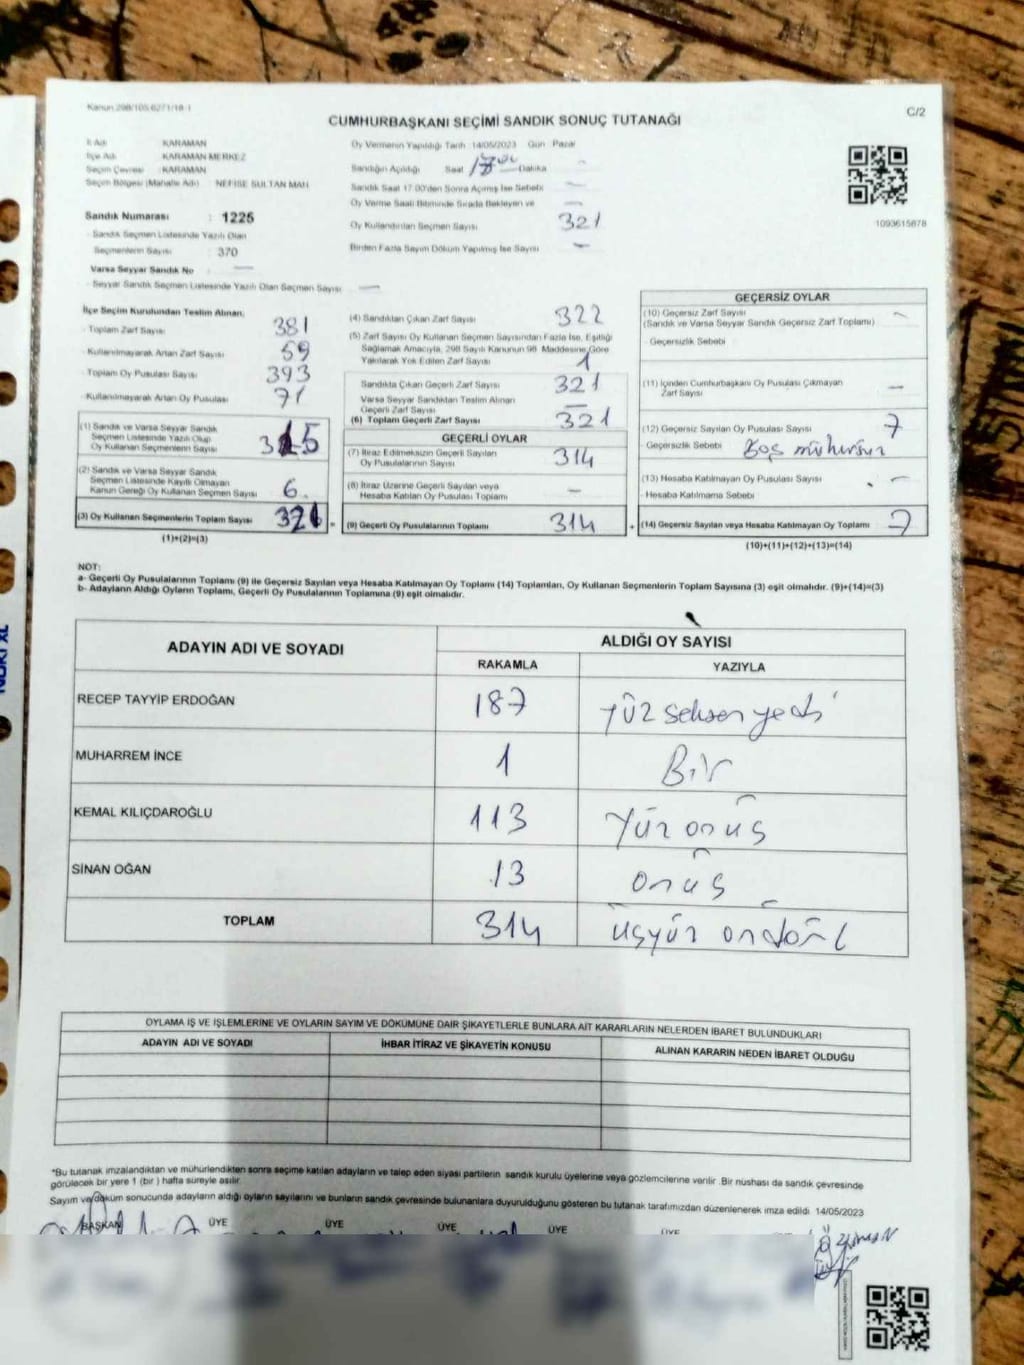 Kanun 298/105.6271/18-1
C/2
CUMHURBAŞKANI SEÇİMİ SANDIK SONUÇ TUTANAĞI
İl Adı : KARAMAN
İlçe Adı : KARAMAN MERKEZ
Seçim Çevresi : KARAMAN
Seçim Bölgesi (Mahalle Adı) : NEFİSE SULTAN MAH
Sandık Numarası : 1225
- Sandık Seçmen Listesinde Yazılı Olan
Seçmenlerin Sayısı : 370
Varsa Seyyar Sandık No —
- Seyyar Sandık Seçmen Listesinde Yazılı Olan Seçmen Sayısı : —
Oy Vermenin Yapıldığı Tarih 14/05/2023 Gün Pazar
Sandığın Açıldığı Saat 17:00 Dakika
Sandık Saat 17.00'den Sonra Açılmış İse Sebebi —
Oy Verme Saati Bitiminde Sırada Bekleyen ve —
Oy Kullandırılan Seçmen Sayısı 321
Birden Fazla Sayım Döküm Yapılmış İse Sayısı —
1093615878
İlçe Seçim Kurulundan Teslim Alınan;
- Toplam Zarf Sayısı 381
- Kullanılmayarak Artan Zarf Sayısı 59
- Toplam Oy Pusulası Sayısı 393
- Kullanılmayarak Artan Oy Pusulası 71
(1) Sandık ve Varsa Seyyar Sandık
Seçmen Listesinde Yazılı Olup
Oy Kullanan Seçmenlerin Sayısı 315
(2) Sandık ve Varsa Seyyar Sandık
Seçmen Listesinde Kayıtlı Olmayan
Kanun Gereği Oy Kullanan Seçmen Sayısı 6
(3) Oy Kullanan Seçmenlerin Toplam Sayısı 321 =
(1)+(2)=(3)
(4) Sandıktan Çıkan Zarf Sayısı 322
(5) Zarf Sayısı Oy Kullanan Seçmen Sayısından Fazla İse, Eşitliği
Sağlamak Amacıyla, 298 Sayılı Kanunun 98. Maddesine Göre
Yakılarak Yok Edilen Zarf Sayısı 1
Sandıkta Çıkan Geçerli Zarf Sayısı 321
Varsa Seyyar Sandıktan Teslim Alınan
Geçerli Zarf Sayısı —
(6) Toplam Geçerli Zarf Sayısı 321
GEÇERLİ OYLAR
(7) İtiraz Edilmeksizin Geçerli Sayılan
Oy Pusulalarının Sayısı 314
(8) İtiraz Üzerine Geçerli Sayılan veya
Hesaba Katılan Oy Pusulası Toplamı —
(9) Geçerli Oy Pusulalarının Toplamı 314 +
GEÇERSİZ OYLAR
(10) Geçersiz Zarf Sayısı —
(Sandık ve Varsa Seyyar Sandık Geçersiz Zarf Toplamı)
- Geçersizlik Sebebi
(11) İçinden Cumhurbaşkanı Oy Pusulası Çıkmayan
Zarf Sayısı —
(12) Geçersiz Sayılan Oy Pusulası Sayısı 7
- Geçersizlik Sebebi Boş mühürsüz
(13) Hesaba Katılmayan Oy Pusulası Sayısı —
- Hesaba Katılmama Sebebi
(14) Geçersiz Sayılan veya Hesaba Katılmayan Oy Toplamı 7
(10)+(11)+(12)+(13)=(14)
NOT:
a- Geçerli Oy Pusulalarının Toplamı (9) ile Geçersiz Sayılan veya Hesaba Katılmayan Oy Toplamı (14) Toplamları, Oy Kullanan Seçmenlerin Toplam Sayısına (3) eşit olmalıdır. (9)+(14)=(3)
b- Adayların Aldığı Oyların Toplamı, Geçerli Oy Pusulalarının Toplamına (9) eşit olmalıdır.
ADAYIN ADI VE SOYADI ALDIĞI OY SAYISI
RAKAMLA YAZIYLA
RECEP TAYYİP ERDOĞAN 187 Yüz seksen yedi
MUHARREM İNCE 1 Bir
KEMAL KILIÇDAROĞLU 113 Yüz onüç
SİNAN OĞAN 13 onüç
TOPLAM 314 üçyüz ondört
OYLAMA İŞ VE İŞLEMLERİNE VE OYLARIN SAYIM VE DÖKÜMÜNE DAİR ŞİKAYETLERLE BUNLARA AİT KARARLARIN NELERDEN İBARET BULUNDUKLARI
ADAYIN ADI VE SOYADI İHBAR İTİRAZ VE ŞİKAYETİN KONUSU ALINAN KARARIN NEDEN İBARET OLDUĞU
*Bu tutanak imzalandıktan ve mühürlendikten sonra seçime katılan adayların ve talep eden siyasi partilerin sandık kurulu üyelerine veya gözlemcilerine verilir .Bir nüshası da sandık çevresinde
görülecek bir yere 1 (bir ) hafta süreyle asılır.
Sayım ve döküm sonucunda adayların aldığı oyların sayılarını ve bunların sandık çevresinde bulunanlara duyurulduğunu gösteren bu tutanak tarafımızdan düzenlenerek imza edildi 14/05/2023
BAŞKAN ÜYE ÜYE ÜYE ÜYE ÜYE